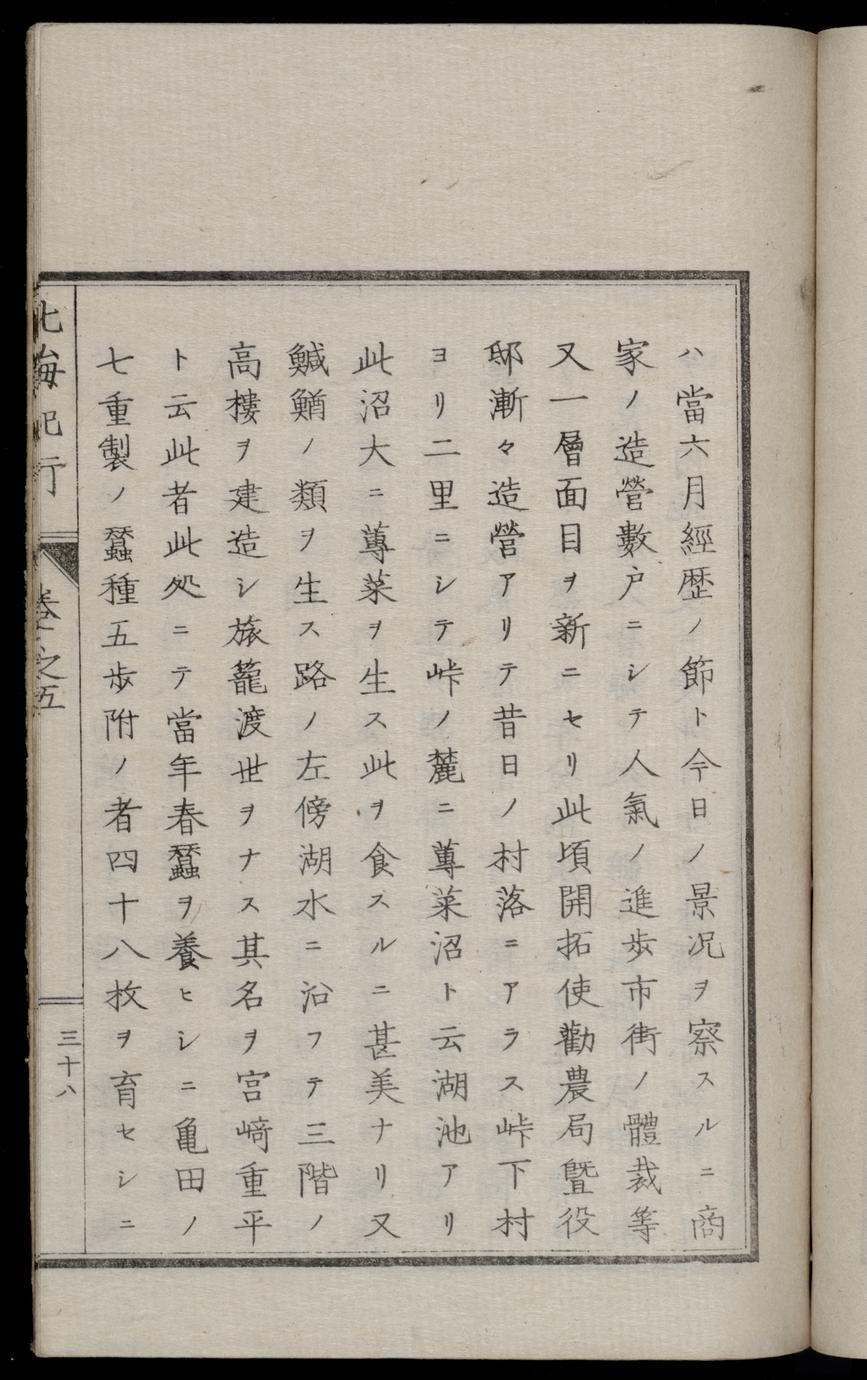 ハ當六月經歴ノ節ト今日ノ景况ヲ察スルニ商
家ノ造營數户ニシテ人氣ノ進歩市街ノ體裁等
又一層面目ヲ新ニセリ此頃開拓使勸農局曁役
邸漸々造營アリテ昔日ノ村落ニアラス峠下村
ヨリ二里ニシテ峠ノ麓ニ蓴菜沼ト云湖池アリ
此沼大ニ蓴菜ヲ生ス此ヲ食スルニ甚美ナリ又
鰔鰌ノ類ヲ生ス路ノ左傍湖水ニ沿フテ三階ノ
高樓ヲ建造シ旅籠渡世ヲナス其名ヲ宮﨑重平
ト云此者此処ニテ當年春蠶ヲ養ヒシニ亀田ノ
七重製ノ蠶種五歩附ノ者四十八枚ヲ育セシニ
北海紀行 卷之五 三十八